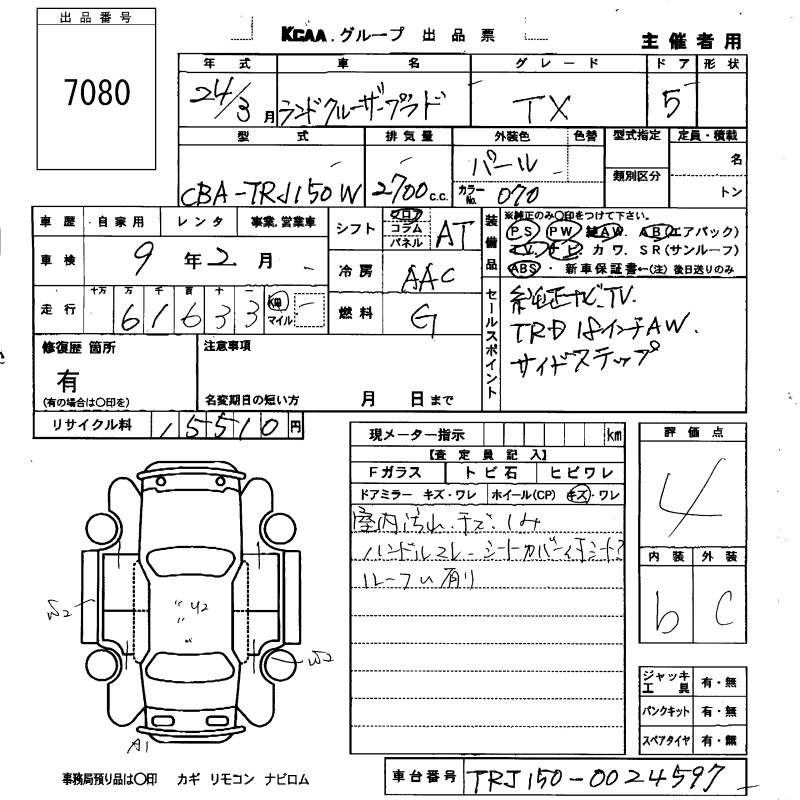 出品番号
7080
KCAA.グループ 出品票
主催者用
年式 車名 グレード ドア 形状
24/3月 ランドクルーザープラド TX 5
型式 排気量 外装色 色替 型式指定 定員・積載
CBA-TRJ150W 2700c.c. パール 名
カラーNo. 070 類別区分 トン
車歴 自家用 レンタ 事業.営業車
車検 9年2月
走行 十万 万 千 百 十 一 km マイル
61633
シフト フロア コラム パネル AT
冷房 AAC
燃料 G
装備品
※純正のみ○印をつけて下さい。
PS PW 純AW. AB(エアバック)
TV. ナビ カワ. SR(サンルーフ)
ABS・新車保証書←(注)後日送りのみ
セールスポイント
純正ナビTV.
TRD 18インチAW.
サイドステップ
修復歴 箇所
有
(有の場合は○印を)
注意事項
名変期日の短い方 月 日まで
リサイクル料 15510円
現メーター指示 km
【査定員記入】
Fガラス トビ石 ヒビワレ
ドアミラー キズ・ワレ ホイール(CP) キズ・ワレ
室内汚れ.キズ.しみ
ハンドルスレ-シートカバー付
ルーフ 有り
評価点
4
内装 外装
b C
W2
U2
W2
A1
ジャッキ工具 有・無
パンクキット 有・無
スペアタイヤ 有・無
事務局預り品は○印 カギ リモコン ナビロム
車台番号 TRJ150-0024597